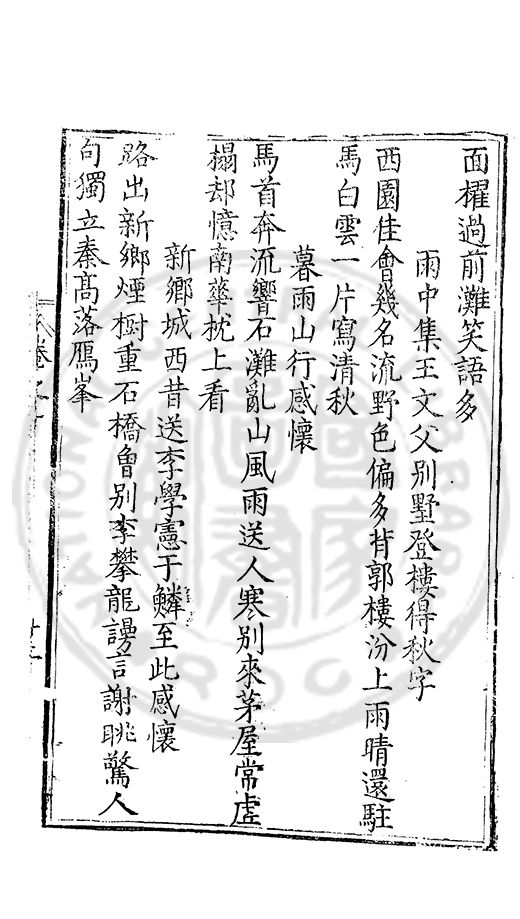 面櫂過前灘笑語多
雨中集王文父別墅登樓得秋字
西園佳會幾名流野色偏多背郭樓汾上雨晴還駐
馬白雲一片寫清秋
暮雨山行感懷
馬首奔流響石灘亂山風雨送人寒別來茅屋常虛
榻却憶南華枕上看
新鄉城西昔送李學憲于鱗至此感懷
路出新鄉煙樹重石橋曾別李攀龍謾言謝眺驚人
句獨立秦髙落鴈峯